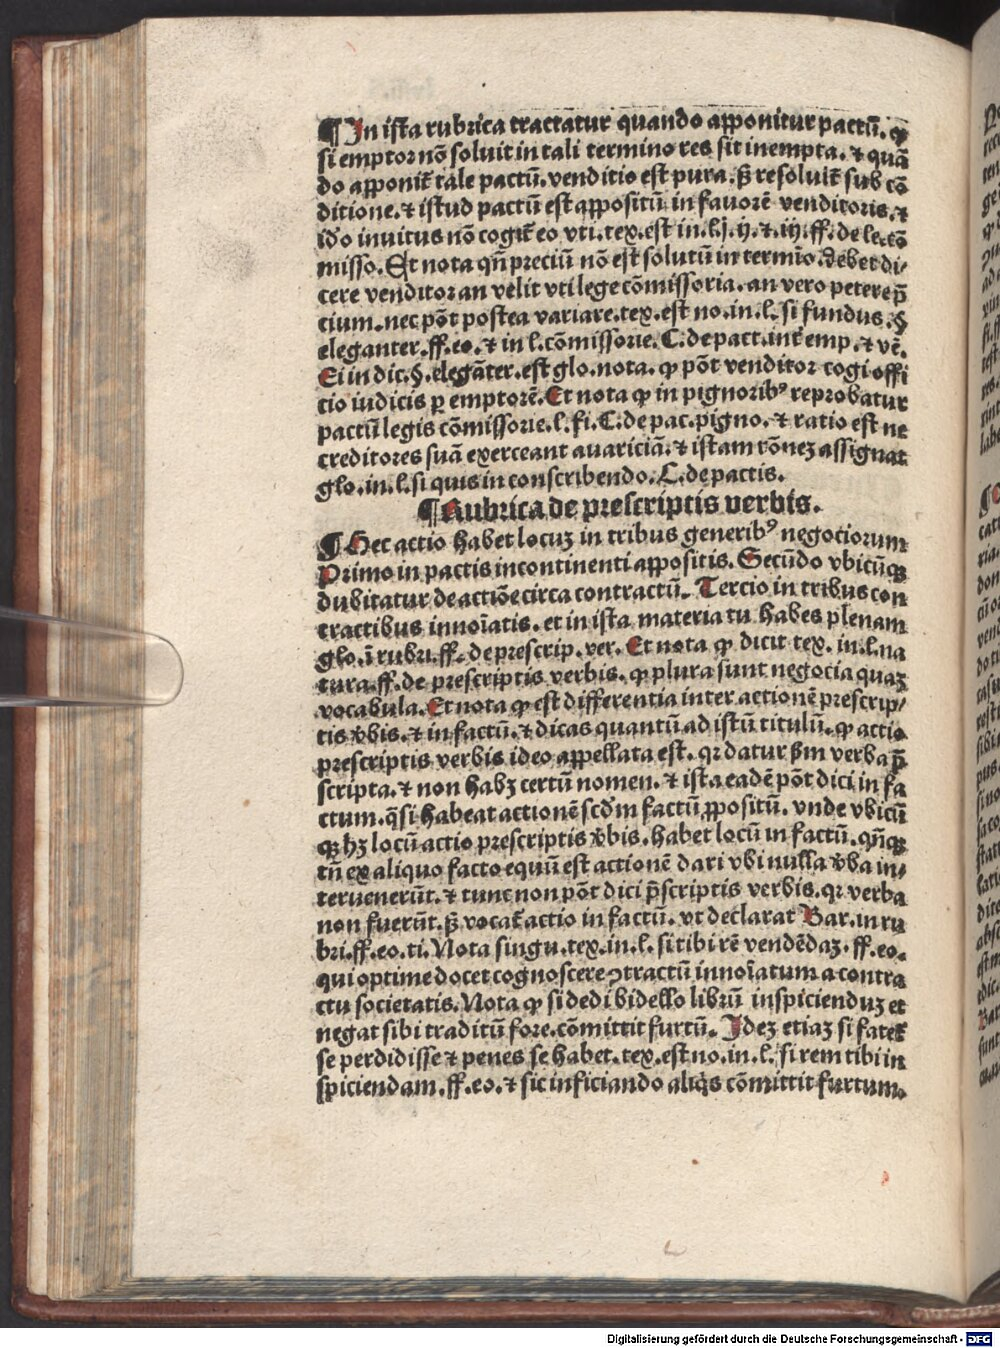 ¶ In ista rubrica tractatur quando apponitur pactū. ꝙ
si emptor nō soluit in tali termino res sit inempta. ⁊ quā
do apponit̄ tale pactū. venditio est pura. sꝫ resoluit̄ sub cō
ditione. ⁊ istud pactū est appositū in fauorē venditoris. ⁊
ido inuitus nō cogit̄ eo vti. tex. est in. l. j. ij. ⁊. iij. ff. de le. cō
misso. Et nota qn̄ preciū nō est solutū in termīo. debet di⸗
cere venditor an velit vti lege cōmissoria. an vero petere p̄
cium. nec pōt postea variare. tex. est no. in. l. si fundus. §
eleganter. ff. eo. ⁊ in l. cōmissorie. C. de pact. int̄ emp. ⁊ vē.
Ei in dic. §. elegāter. est glo. nota. ꝙ pōt venditor cogi offi
cio iudicis ꝑ emptorē. Et nota ꝙ in pignoribꝰ reprobatur
pactū legis cōmissorie. l. fi. C. de pac. pigno. ⁊ ratio est ne
creditores suā exerceant auariciā. ⁊ istam rōneꝫ assignat
glo. in. l. si quis in conscribendo. C. de pactis.
¶ Rubrica de prescriptis verbis.
¶ Hec actio habet locuꝫ in tribus generibꝰ negotiorum
Primo in pactis incontinenti appositis. Secūdo vbicūqꝫ
dubitatur de actiōe circa contractū. Tercio in tribus con
tractibus innoīatis. et in ista materia tu habes plenam
glo. ī rubri. ff. de prescrip. ver. Et nota ꝙ dicit tex. in. l. na
tura. ff. de prescriptis verbis. ꝙ plura sunt negocia quaꝫ
vocabula. Et nota ꝙ est differentia inter actionē prescrip⸗
tis v̄bis. ⁊ in factū. ⁊ dicas quantū ad istū titulū. ꝙ actio
prescriptis verbis ideo appellata est. qꝛ datur ẜm verba p̄
scripta. ⁊ non habꝫ certū nomen. ⁊ ista eadē pōt dici in fa
ctum. q̄si habeat actionē scd̄m factū ꝓpositū. vnde vbicū
qꝫ hꝫ locū actio prescriptis v̄bis. habet locū in factū. qn̄qꝫ
tn̄ ex aliquo facto equū est actionē dari vbi nulla v̄ba in⸗
teruenerūt. ⁊ tunc non pōt dici p̄scriptis verbis. qꝛ verba
non fuerūt. sꝫ vocat̄ actio in factū. vt declarat Bar. in ru
bri. ff. eo. ti. Nota singu. tex. in. l. si tibi rē vendēdaꝫ. ff. eo.
qui optime docet cognoscere ꝯtractū innoīatum a contra
ctu societatis. Nota ꝙ si dedi bidello librū inspicienduꝫ et
negat sibi traditū fore. cōmittit furtū. Ideꝫ etiaꝫ si fatet̄
se perdidisse ⁊ penes se habet. tex. est no. in. l. si rem tibi in
spiciendam. ff. eo. ⁊ sic inficiando aliq̄s cōmittit furtum.
Digitalisierung gefördert durch die Deutsche Forschungsgemeinschaft - DFG